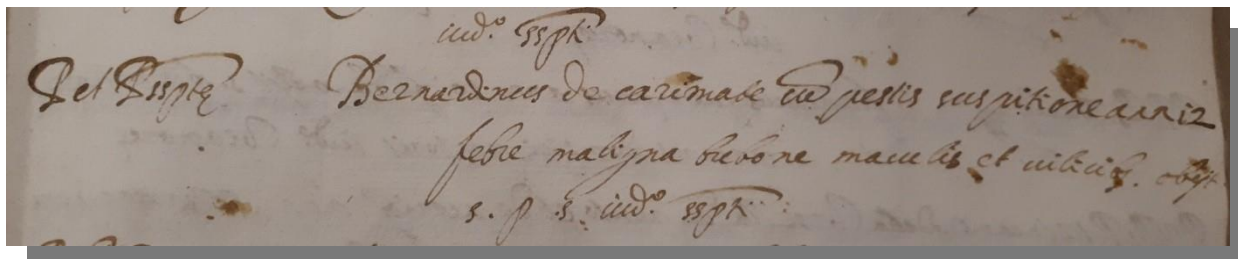 iud.º sspti
P el P ssptę Bernardinus de carimate cũ pestis suspitione ann 12
febre maligna bubone maculis et obijt
s. p. s. iud.º sspti